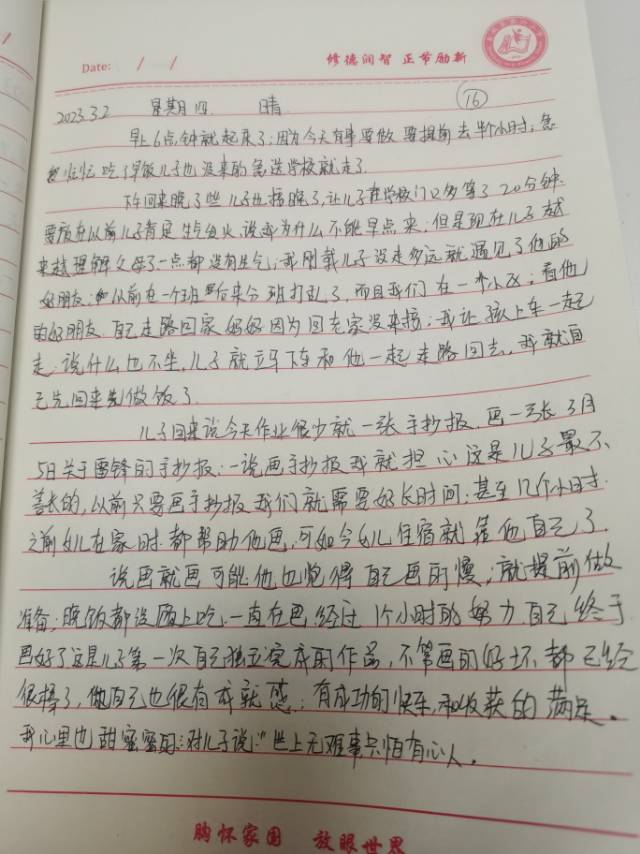 Date: / /
修德润智 正节励新
2023.3.2 星期四 晴 16
早上6点钟就起来了;因为今天有事要做 要提前去半个小时,急
急忙忙吃了早饭儿子也没来的急送学校就走了.
下午回来晚了些儿子也接晚了,让儿子在学校门口多等了20分钟.
要放在以前儿子肯定生气发火,说我为什么不能早点来,但是现在儿子越
来越理解父母了一点都没有生气;我刚载儿子没走多远就遇见了他的
好朋友;以前在一个班后来分班打乱了,而且我们在一个小区;看他
的好朋友自己走路回家妈妈因为回老家没来接;我让孩上车一起
走.说什么也不坐,儿子就立马下车和他一起走路回去,我就自
己先回来先做饭了.
儿子回来说今天作业很少就一张手抄报.画一张3月
5日关于雷锋的手抄报;一说画手抄报我就担心这是儿子最不
善长的,以前只要画手抄报我们就需要好长时间;甚至几个小时.
之前女儿在家时都帮助他画,可如今女儿住宿就靠他自己了.
说画就画可能他也觉得自己画的慢,就提前做
准备;晚饭都没顾上吃,一直在画经过1个小时的努力自己终于
画好了这是儿子第一次自己独立完成的作品,不管画的好坏都已经
很棒了,他自己也很有成就感;有成功的快乐,和收获的满足.
我心里也甜蜜蜜的;对儿子说:"世上无难事只怕有心人.
胸怀家国 放眼世界